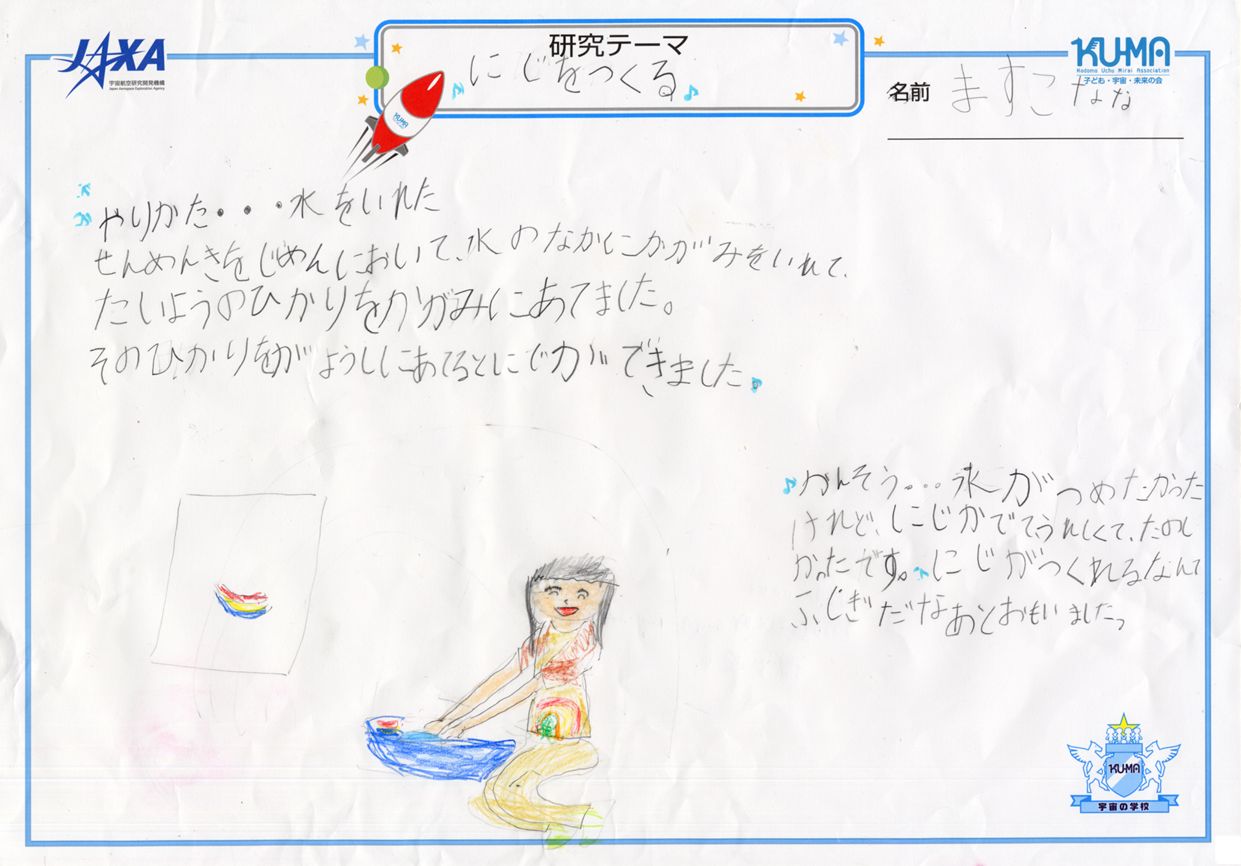 JAXA
宇宙航空研究開発機構
Japan Aerospace Exploration Agency
研究テーマ
にじをつくる
KUMA
KU-MA
Kodomo Uchu Mirai Association
子ども・宇宙・未来の会
名前 ますこ なな
やりかた・・・水をいれた
せんめんきをじめんにおいて、水のなかにかがみをいれて、
たいようのひかりをかがみにあてました。
そのひかりをがようしにあてるとにじができました。
かんそう・・・水がつめたかった
けれど、にじがでてうれしくて、たのし
かったです。にじがつくれるなんて
ふしぎだなあとおもいました。
KU-MA
宇宙の学校